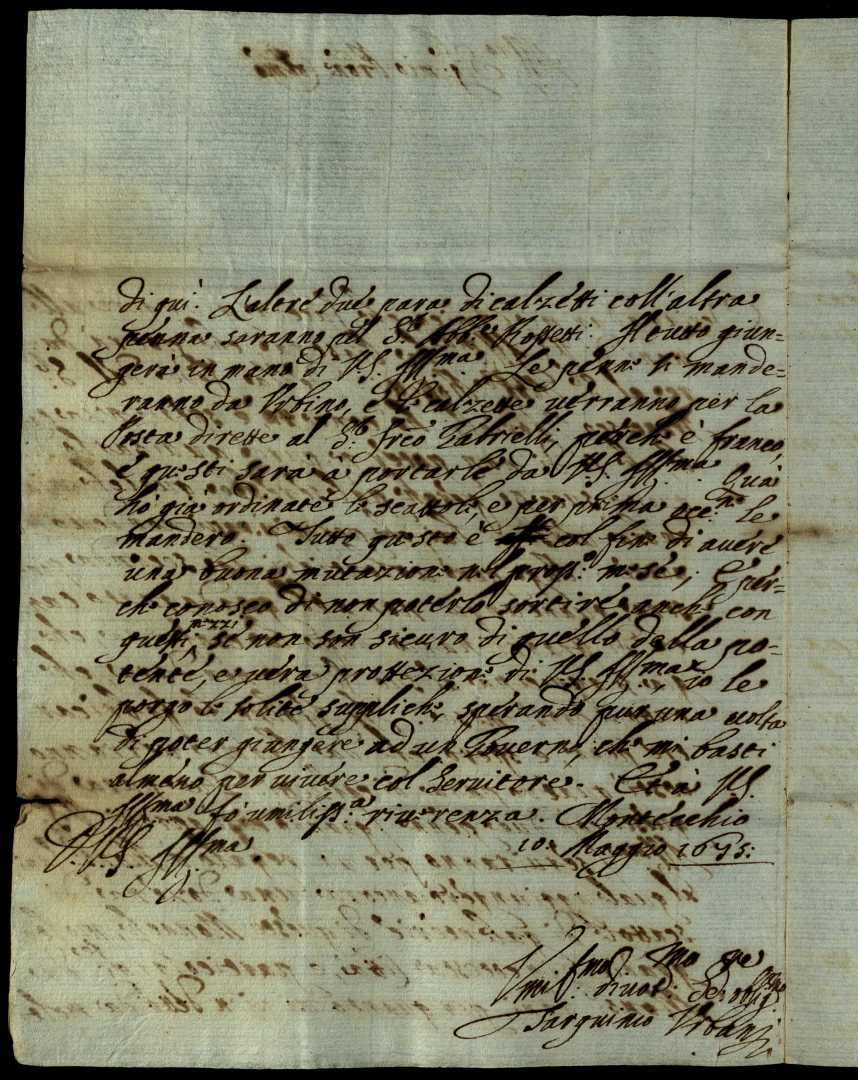 di qui. L'altre due para di calzetti coll'altra
penna saranno pel S.r Abb.e Rossetti. Il tutto giun=
gerà in mano di V.S. Ill.ma. Le penne si mande=
ranno da Urbino, e le calzette verranno per la
Posta dirette al S.r Fran.co Gabrielli, perche è franco,
e questi sarà à portarle da V.S. Ill.ma. Quà
hò già ordinate le scattole, e per prima occ.ne le
manderò. Tutto questo è col fine di avere
una buona mutazione nel pross.o mese, e per=
che conosco di non poterlo sortire anche con
questi mezzi, se non son sicuro di quello della po=
tente, e vera protezione di V.S. Ill.ma, io le
porgo le solite suppliche, sperando pur una volta
di poter giungere ad un Governo, che mi basti
almeno per vivere col Servitore. Et à V.S.
Ill.ma fò umiliss.a riverenza. Montecchio
10: Maggio 1695:
D. V.S. Ill.ma
Umil.mo divot.mo ser.re obblig.mo
Tarquinio Urbani